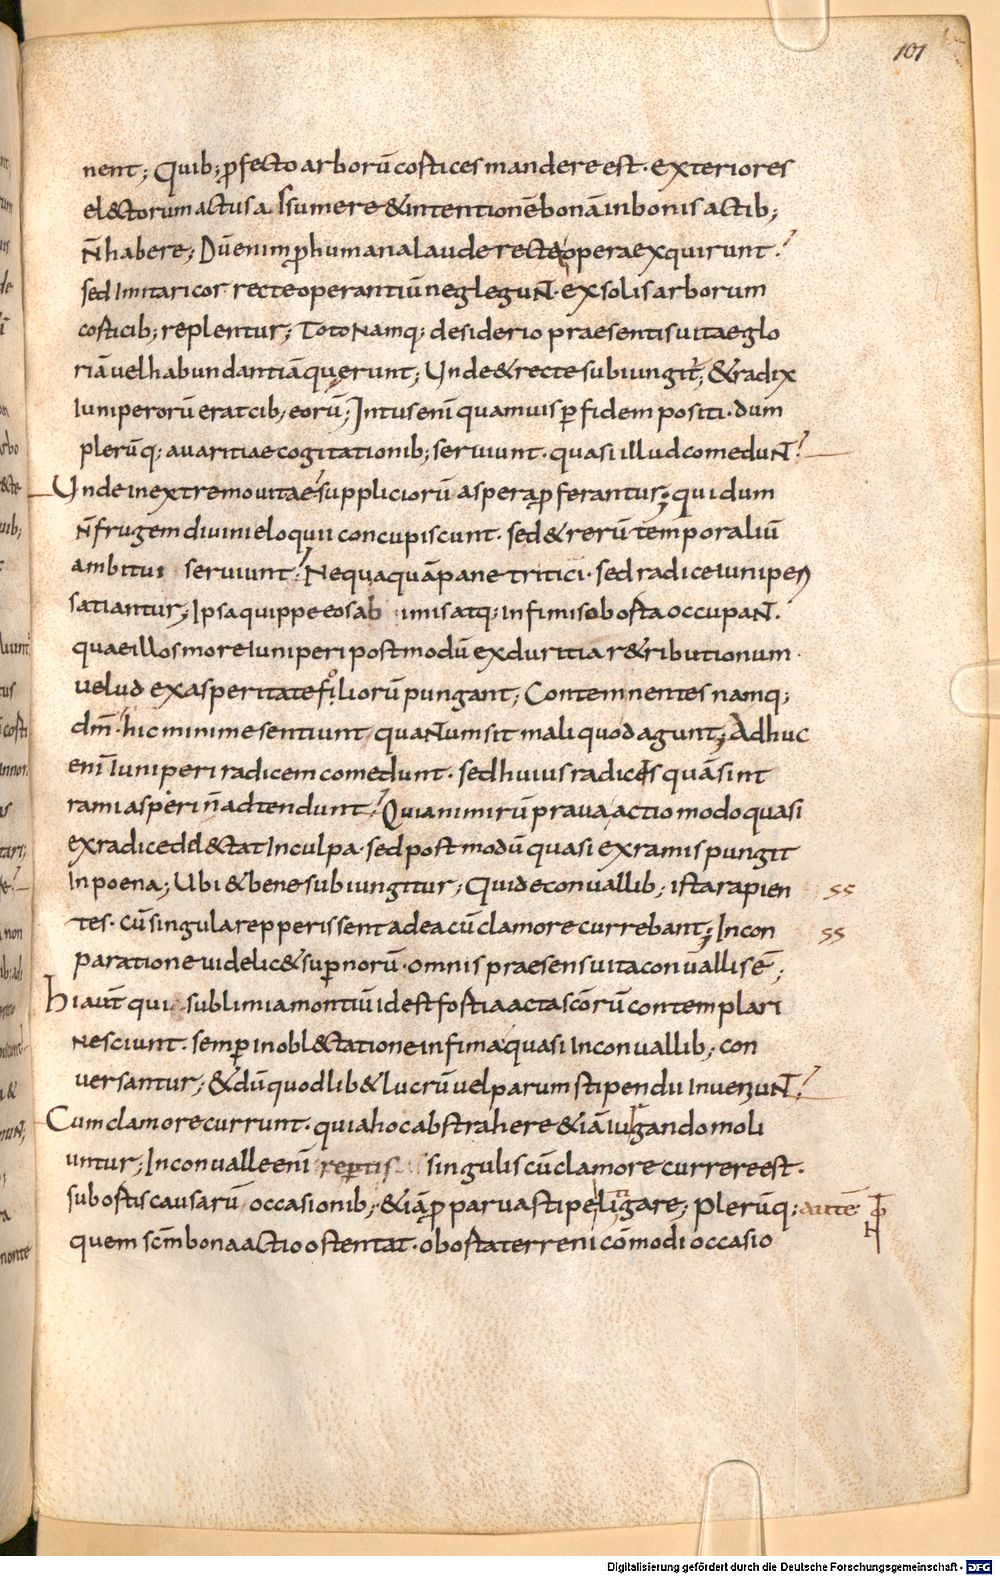 101
nent; Quib; ꝓfecto arborū costices mandere est· exteriores
el&ctorum actus assumere & intentionē bonā in bonis actib;
N̄ habere; Dū enim ꝓ humana laude recte opera exquirunt?
sed Imitari cor recte operantiū neglegunt· ex solis arborum
costicib; replentur; Toto namq; desiderio praesentis uitae glo
riā uel habundantiā querunt; Unde & recte subiungit̄; & radix
Iuniperorū erat cib; eorū; Intus enī quamuis ꝑ fidem positi· dum
plerūq; auaritiae cogitationib; seruiunt· quasi illud comedunt?
Unde in extremo uitae suppliciorū aspera ꝓferantur; qui dum
n̄ frugem diuini eloquii concupiscunt· sed & rerū temporaliū
ambitui seruiunt? Nequaquā pane tritici· sed radice iuniperi
satiantur; Ipsa quippe eos ab imis atq; infimis obosta occupant·
quae illos more Iuniperi postmodū ex duritia r&ributionum·
uelud ex asperitate foliorū pungant; Contemnentes namq;
dm̄· hic minime sentiunt quantum sit mali quod agunt; Adhuc
enī Iuniperi radicem comedunt· sed huius radicis quā sint
rami asperi n̄ adtendunt? Quia nimirū praua actio modo quasi
ex radice del&tat In culpa· sed post modū quasi ex ramis pungit
In poena; Ubi & bene subiungitur; Qui de conuallib; ista rapien ss
tes· cū singula repperissent ad ea cū clamore currebant; In con ss
paratione uidelic& suꝑnorū· omnis praesens uita conuallis ē;
hi aut̄ qui sublimia montiū id est fostia acta scōrū contemplari
nesciunt· semꝑ in obl&tatione infima quasi In conuallib; con
uersantur; & dū quodlib& lucrū uel parum stipendii Inueniunt?
Cum clamore currunt· quia hoc abstrahere & iā Iurgando moli
untur; In conualle enī reꝑtis singulis cū clamore currere est·
sub ostis causarū occasionib; & iā ꝓ parua stipe litigare; Plerūq; autē
quem scm̄ bona actio ostentat· obosta terreni cōmodi occasio
Digitalisierung gefördert durch die Deutsche Forschungsgemeinschaft - DFG